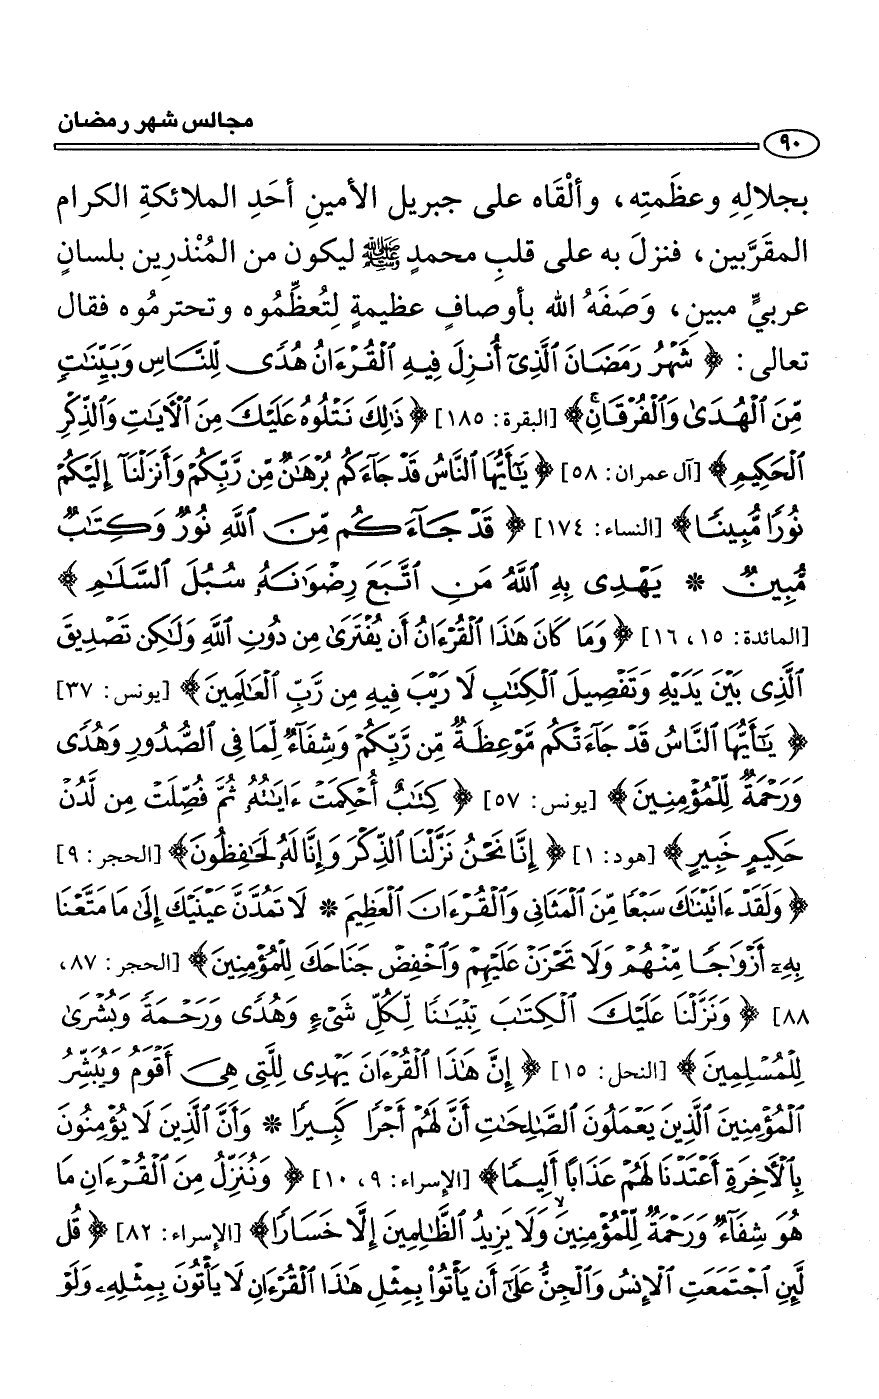 مجالس شهر رمضان
٩٠
بجلالِهِ وعظَمتِه، وألْقَاه على جبريل الأمينِ أحَدِ الملائكةِ الكرام
المقَرَّبين، فنزلَ به على قلبِ محمدٍ ﷺ ليكون من المُنْذرِين بلسانٍ
عربيٍّ مبينٍ، وَصَفَهُ الله بأوصافٍ عظيمةٍ لِتُعظِّمُوه وتحترمُوه فقال
تعالى: ﴿ شَهْرُ رَمَضَانَ ٱلَّذِىٓ أُنزِلَ فِيهِ ٱلْقُرْءَانُ هُدًى لِّلنَّاسِ وَبَيِّنَٰتٍ
مِّنَ ٱلْهُدَىٰ وَٱلْفُرْقَانِۚ﴾ [البقرة: ١٨٥] ﴿ ذَٰلِكَ نَتْلُوهُ عَلَيْكَ مِنَ ٱلْآيَٰتِ وَٱلذِّكْرِ
ٱلْحَكِيمِ﴾ [آل عمران: ٥٨] ﴿ يَٰٓأَيُّهَا ٱلنَّاسُ قَدْ جَآءَكُم بُرْهَٰنٌ مِّن رَّبِّكُمْ وَأَنزَلْنَآ إِلَيْكُمْ
نُورًا مُّبِينًا﴾ [النساء: ١٧٤] ﴿ قَدْ جَآءَكُم مِّنَ ٱللَّهِ نُورٌ وَكِتَٰبٌ
مُّبِينٌ * يَهْدِى بِهِ ٱللَّهُ مَنِ ٱتَّبَعَ رِضْوَٰنَهُۥ سُبُلَ ٱلسَّلَٰمِ ﴾
[المائدة: ١٥، ١٦] ﴿ وَمَا كَانَ هَٰذَا ٱلْقُرْءَانُ أَن يُفْتَرَىٰ مِن دُونِ ٱللَّهِ وَلَٰكِن تَصْدِيقَ
ٱلَّذِى بَيْنَ يَدَيْهِ وَتَفْصِيلَ ٱلْكِتَٰبِ لَا رَيْبَ فِيهِ مِن رَّبِّ ٱلْعَٰلَمِينَ﴾ [يونس: ٣٧]
﴿ يَٰٓأَيُّهَا ٱلنَّاسُ قَدْ جَآءَتْكُم مَّوْعِظَةٌ مِّن رَّبِّكُمْ وَشِفَآءٌ لِّمَا فِى ٱلصُّدُورِ وَهُدًى
وَرَحْمَةٌ لِّلْمُؤْمِنِينَ﴾ [يونس: ٥٧] ﴿ كِتَٰبٌ أُحْكِمَتْ ءَايَٰتُهُۥ ثُمَّ فُصِّلَتْ مِن لَّدُنْ
حَكِيمٍ خَبِيرٍ﴾ [هود: ١] ﴿ إِنَّا نَحْنُ نَزَّلْنَا ٱلذِّكْرَ وَإِنَّا لَهُۥ لَحَٰفِظُونَ﴾ [الحجر: ٩]
﴿ وَلَقَدْ ءَاتَيْنَٰكَ سَبْعًا مِّنَ ٱلْمَثَانِى وَٱلْقُرْءَانَ ٱلْعَظِيمَ * لَا تَمُدَّنَّ عَيْنَيْكَ إِلَىٰ مَا مَتَّعْنَا
بِهِۦٓ أَزْوَٰجًا مِّنْهُمْ وَلَا تَحْزَنْ عَلَيْهِمْ وَٱخْفِضْ جَنَاحَكَ لِلْمُؤْمِنِينَ﴾ [الحجر: ٨٧،
٨٨] ﴿ وَنَزَّلْنَا عَلَيْكَ ٱلْكِتَٰبَ تِبْيَٰنًا لِّكُلِّ شَىْءٍ وَهُدًى وَرَحْمَةً وَبُشْرَىٰ
لِلْمُسْلِمِينَ﴾ [النحل: ١٥] ﴿ إِنَّ هَٰذَا ٱلْقُرْءَانَ يَهْدِى لِلَّتِى هِىَ أَقْوَمُ وَيُبَشِّرُ
ٱلْمُؤْمِنِينَ ٱلَّذِينَ يَعْمَلُونَ ٱلصَّٰلِحَٰتِ أَنَّ لَهُمْ أَجْرًا كَبِيرًا * وَأَنَّ ٱلَّذِينَ لَا يُؤْمِنُونَ
بِٱلْأَخِرَةِ أَعْتَدْنَا لَهُمْ عَذَابًا أَلِيمًا﴾ [الإسراء: ٩، ١٠] ﴿ وَنُنَزِّلُ مِنَ ٱلْقُرْءَانِ مَا
هُوَ شِفَآءٌ وَرَحْمَةٌ لِّلْمُؤْمِنِينَۙ وَلَا يَزِيدُ ٱلظَّٰلِمِينَ إِلَّا خَسَارًا﴾ [الإسراء: ٨٢] ﴿ قُل
لَّئِنِ ٱجْتَمَعَتِ ٱلْإِنسُ وَٱلْجِنُّ عَلَىٰٓ أَن يَأْتُوا۟ بِمِثْلِ هَٰذَا ٱلْقُرْءَانِ لَا يَأْتُونَ بِمِثْلِهِۦ وَلَوْ